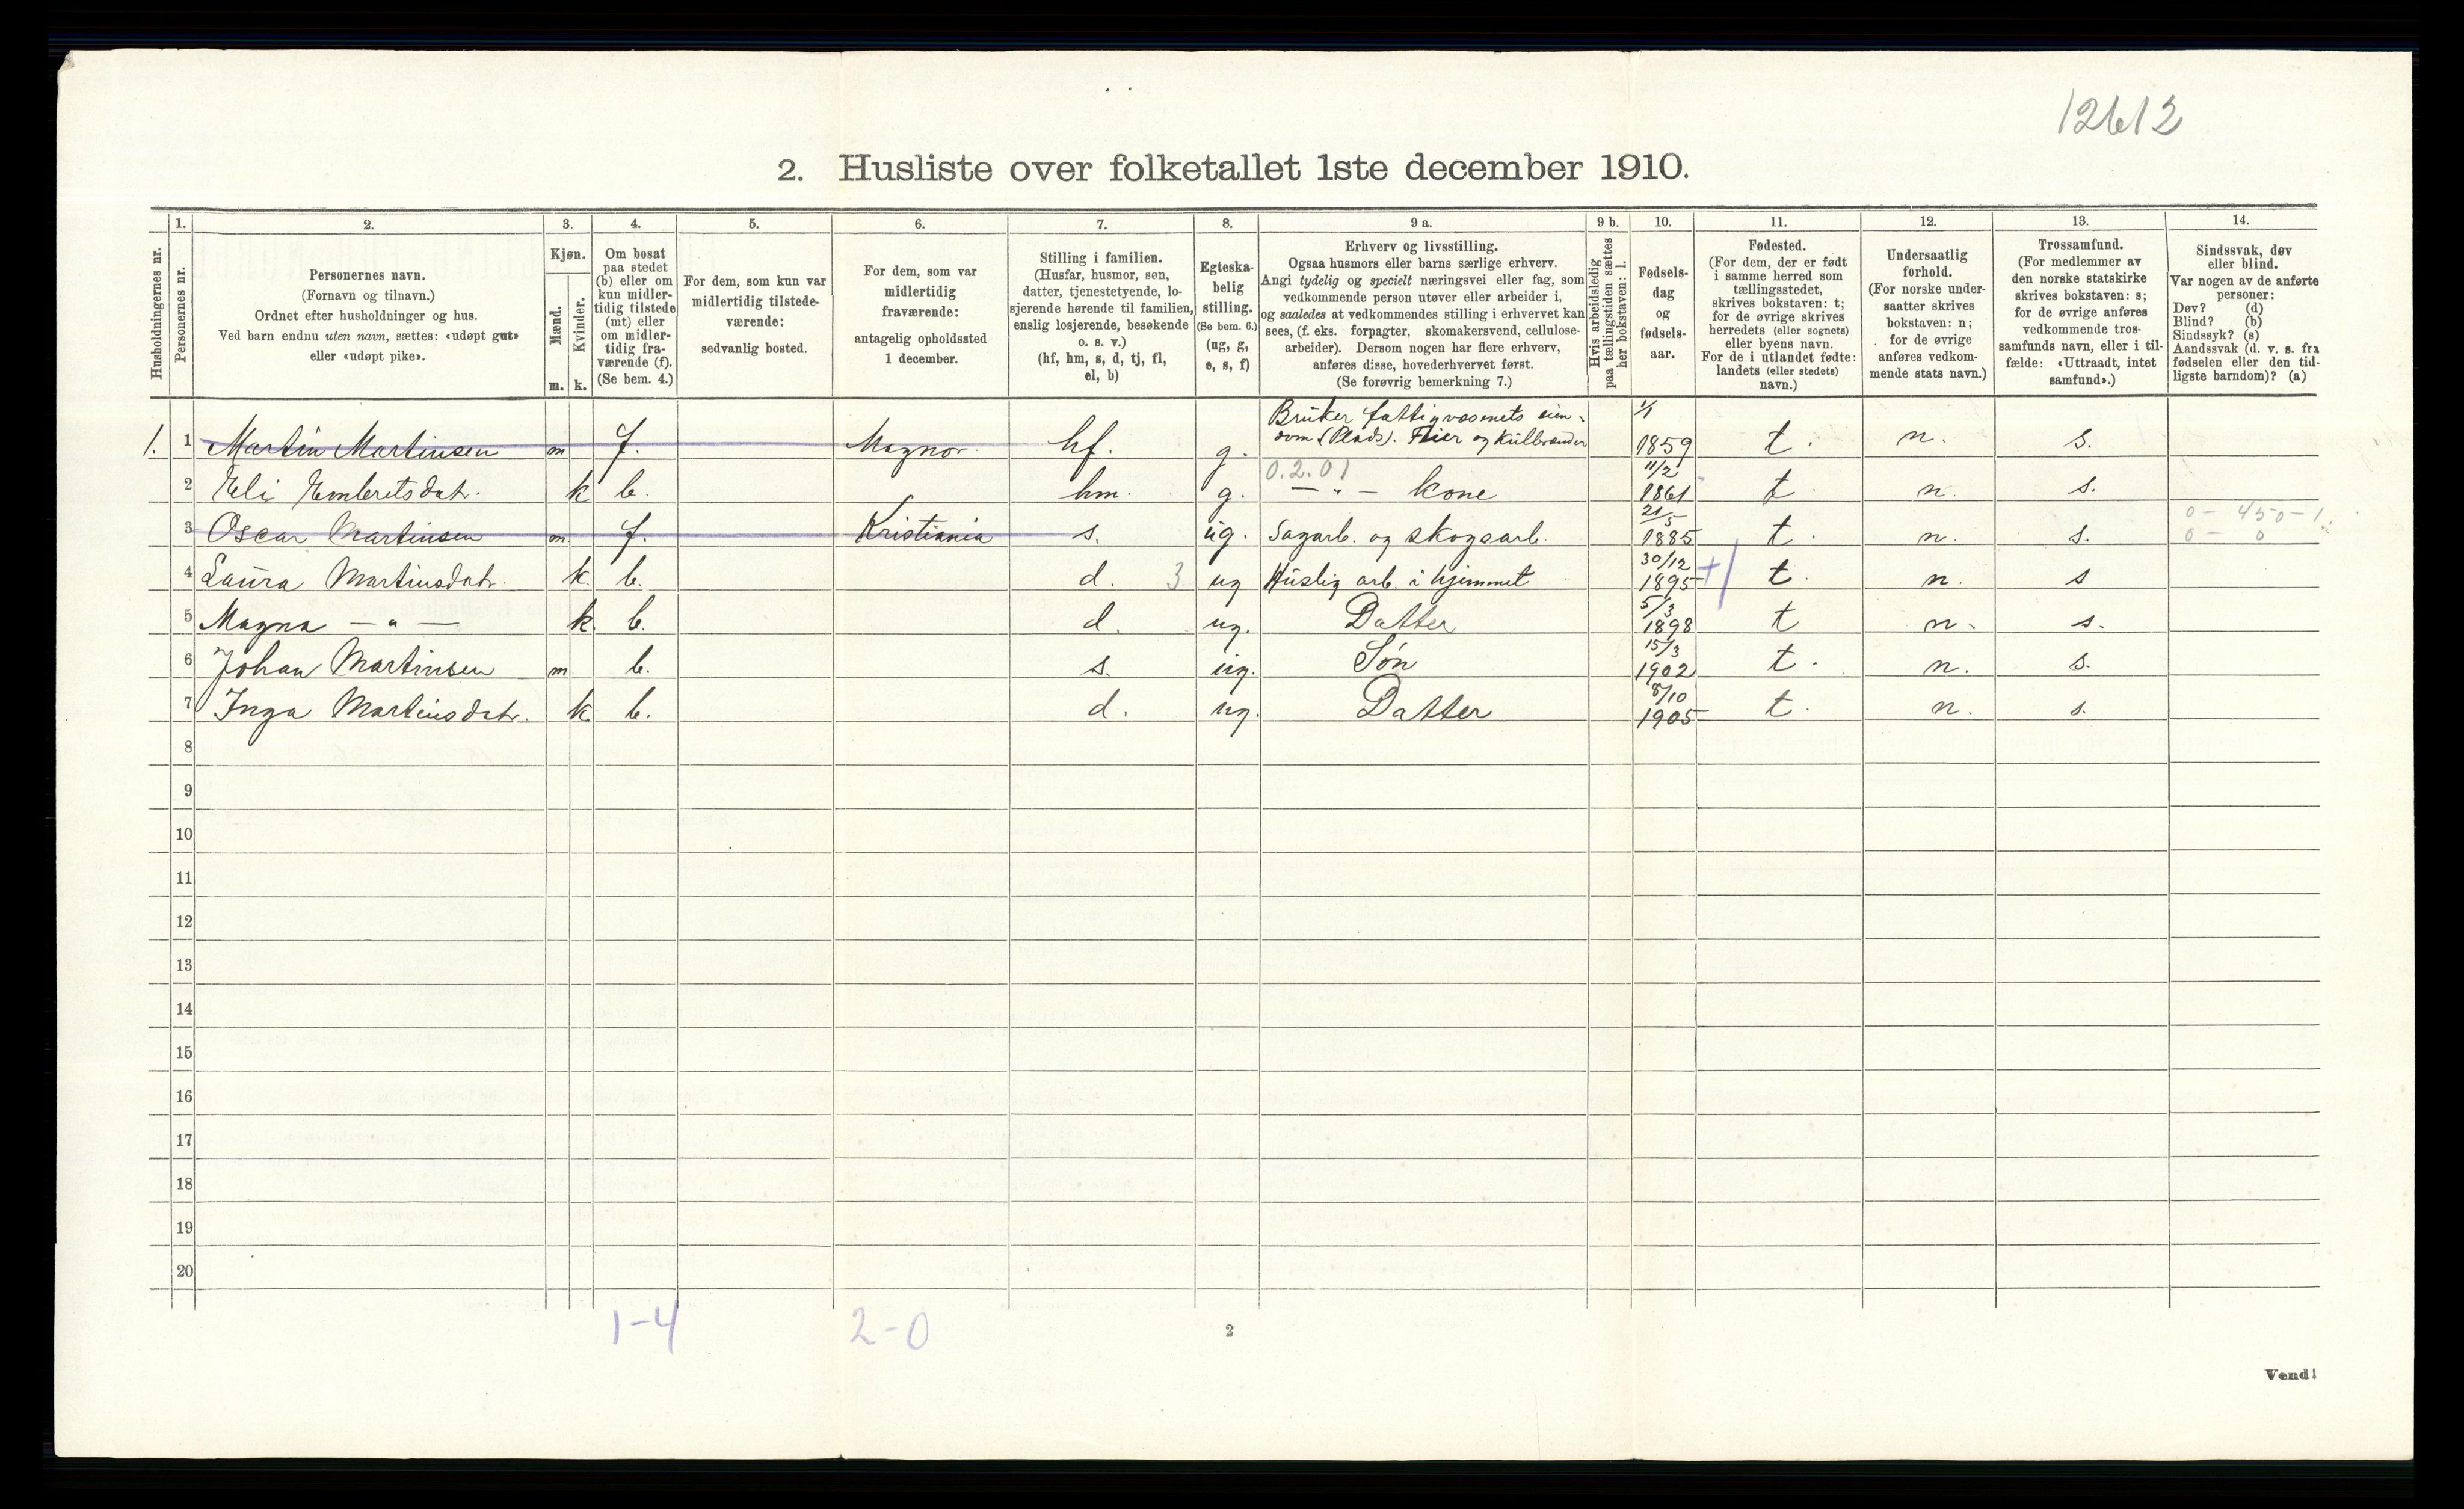 12612
2. Husliste over folketallet 1ste december 1910.
Husholdningernes nr.
1. Personernes nr.
2. Personernes navn.
(Fornavn og tilnavn.)
Ordnet efter husholdninger og hus.
Ved barn endnu uten navn, sættes: «udøpt gut»
eller «udøpt pike».
3. Kjøn.
Mænd. m.
Kvinder. k.
4. Om bosat
paa stedet
(b) eller om
kun midler-
tidig tilstede
(mt) eller
om midler-
tidig fra-
værende (f).
(Se bem. 4.)
5. For dem, som kun var
midlertidig tilstede-
værende:
sedvanlig bosted.
6. For dem, som var
midlertidig
fraværende:
antagelig opholdssted
1 december.
7. Stilling i familien.
(Husfar, husmor, søn,
datter, tjenestetyende, lo-
sjerende hørende til familien,
enslig losjerende, besøkende
o. s. v.)
(hf, hm, s, d, tj, fl,
el, b)
8. Egteska-
belig
stilling.
(Se bem. 6.)
(ug, g,
e, s, f)
9 a. Erhverv og livsstilling.
Ogsaa husmors eller barns særlige erhverv.
Angi tydelig og specielt næringsvei eller fag, som
vedkommende person utøver eller arbeider i,
og saaledes at vedkommendes stilling i erhvervet kan
sees, (f. eks. forpagter, skomakersvend, cellulose-
arbeider). Dersom nogen har flere erhverv,
anføres disse, hovederhvervet først.
(Se forøvrig bemerkning 7.)
9 b. Hvis arbeidsledig
paa tællingstiden sættes
her bokstaven: l.
10. Fødsels-
dag
og
fødsels-
aar.
11. Fødested.
(For dem, der er født
i samme herred som
tællingsstedet,
skrives bokstaven: t;
for de øvrige skrives
herredets (eller sognets)
eller byens navn.
For de i utlandet fødte:
landets (eller stedets)
navn.)
12. Undersaatlig
forhold.
(For norske under-
saatter skrives
bokstaven: n;
for de øvrige
anføres vedkom-
mende stats navn.)
13. Trossamfund.
(For medlemmer av
den norske statskirke
skrives bokstaven: s;
for de øvrige anføres
vedkommende tros-
samfunds navn, eller i til-
fælde: «Uttraadt, intet
samfund».)
14. Sindssvak, døv
eller blind.
Var nogen av de anførte
personer:
Døv? (d)
Blind? (b)
Sindssyk? (s)
Aandssvak (d. v. s. fra
fødselen eller den tid-
ligste barndom)? (a)
Bruker fattigvæsenets eien- 1/1
1. 1 Martin Martinsen m f. Magnor hf. g. dom (Plads). og Kulbrænder 1859 t. n. s.
0.2.01 11/2
2 Eli Embretsdat. k b. hm. g. — " — Kone 1861 t n. s.
21/5 0 - 450 - 1.
3 Oscar Martinsen m. f. Kristiania s. ug. Sagarb. og skogsarb. 1885 t. n. s. 0 - 0
30/12
4 Laura Martinsdatr. k. b. d. 3 ug Huslig arb. i hjemmet 1895 t. n. s
5/3
5 Magna — " — k. b. d. ug. Datter 1898 t n. s.
15/3
6 Johan Martinsen m b. s. ug. Søn 1902 t. n. s.
8/10
7 Inga Martinsdatr. k b. d. ug. Datter 1905 t. n. s.
8
9
10
11
12
13
14
15
16
17
18
19
20
1-4 2-0 2
Vend!